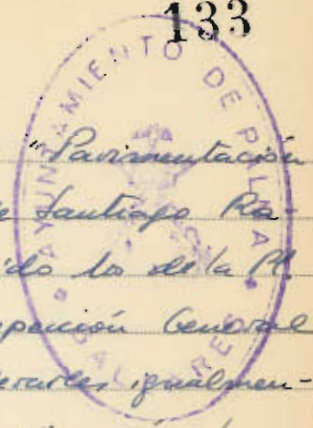 133
AYUNTAMIENTO DE PALMA
BALEARES
"Pavimentación
Santiago Ra-
ido los de la Pl.
General
igualmen-